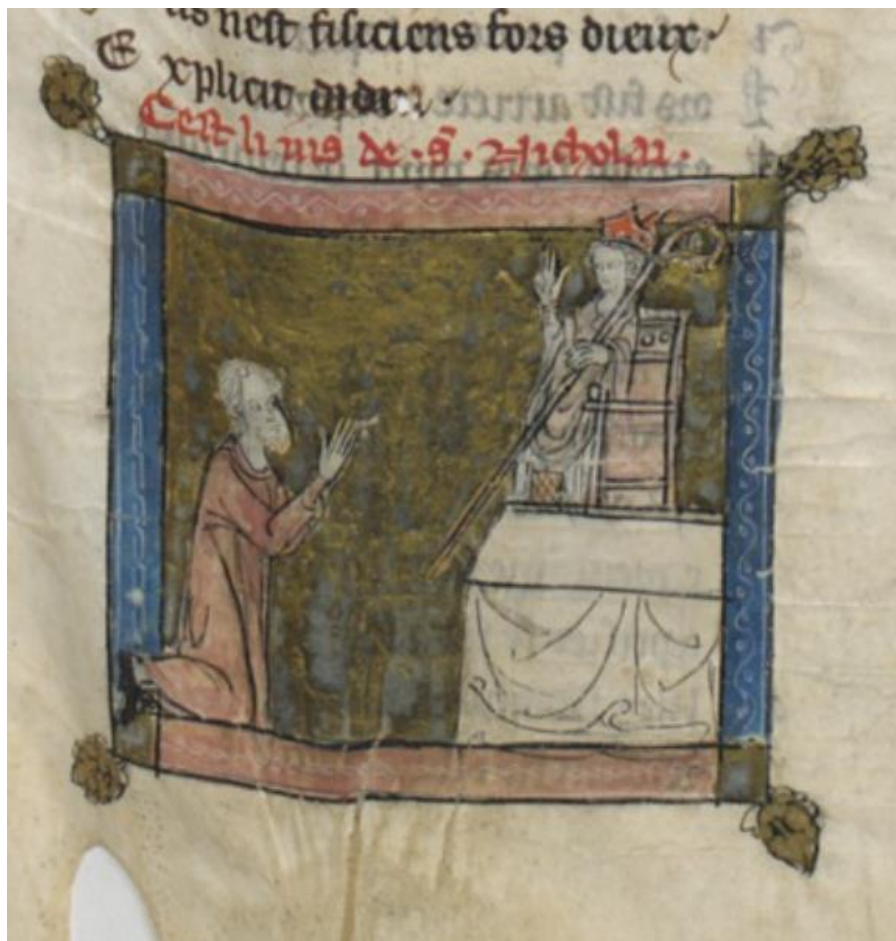 us nest fisiciens fors dieux·
E xplicit
Cest li ius de ·s̄· Nicholai·